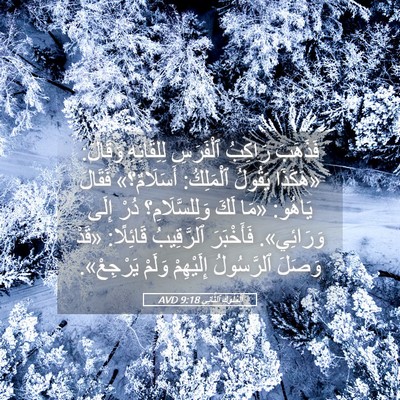 فَذَهَبَ رَاكِبُ ٱلْفَرَسِ لِلِقَائِهِ وَقَالَ:
«هَكَذَا يَقُولُ ٱلْمَلِكُ: أَسَلَامٌ؟» فَقَالَ
يَاهُو: «مَا لَكَ وَلِلسَّلَامِ؟ دُرْ إِلَى
وَرَائِي». فَأَخْبَرَ ٱلرَّقِيبُ قَائِلًا: «قَدْ
وَصَلَ ٱلرَّسُولُ إِلَيْهِمْ وَلَمْ يَرْجِعْ».
اَلْمُلُوكَ ٱلثَّانِي 9:18 AVD